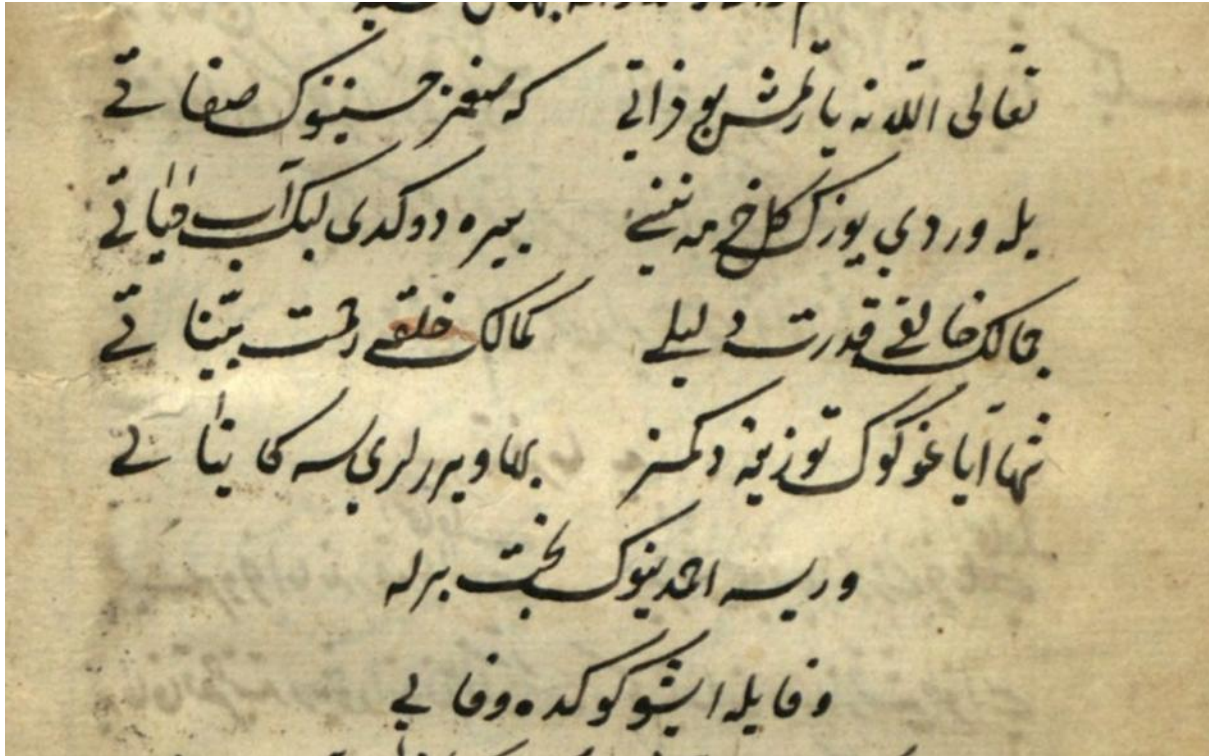 تعالی الله نه یارتمش بو ذاتی که صغمز حسنینوک صفاتی
یله وردی یوزک کل خرمننی ییره دوکدی لبک آب حیاتی
جمالک خالقی قدرت دلیلی کمالک خلقی رحمت بیناتی
ایاغوکوک توزینه دکمز بها ویررلریسه کایناتی
وریسه احمدینوک بخت برله
وفایله ایشوکوکده وفاتی